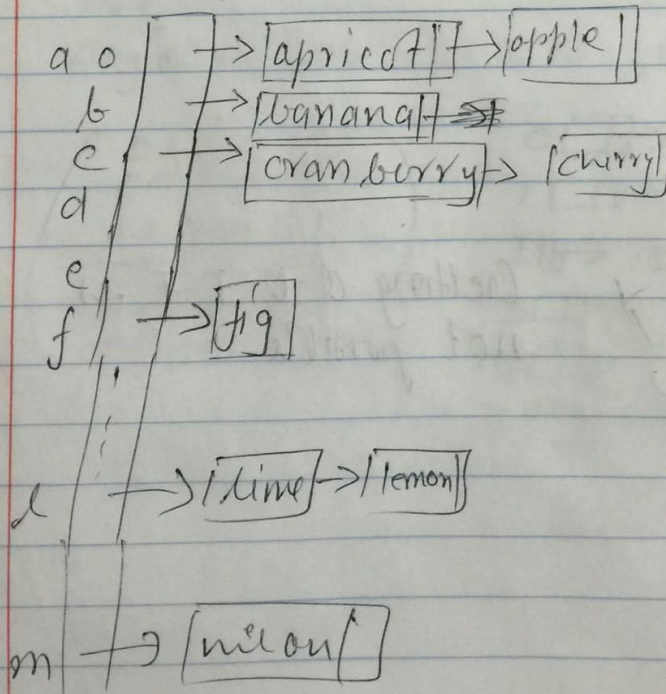 a 0 → apricot → apple
b → banana
c → cranberry → cherry
d
e
f → fig
l → lime → lemon
m → melon